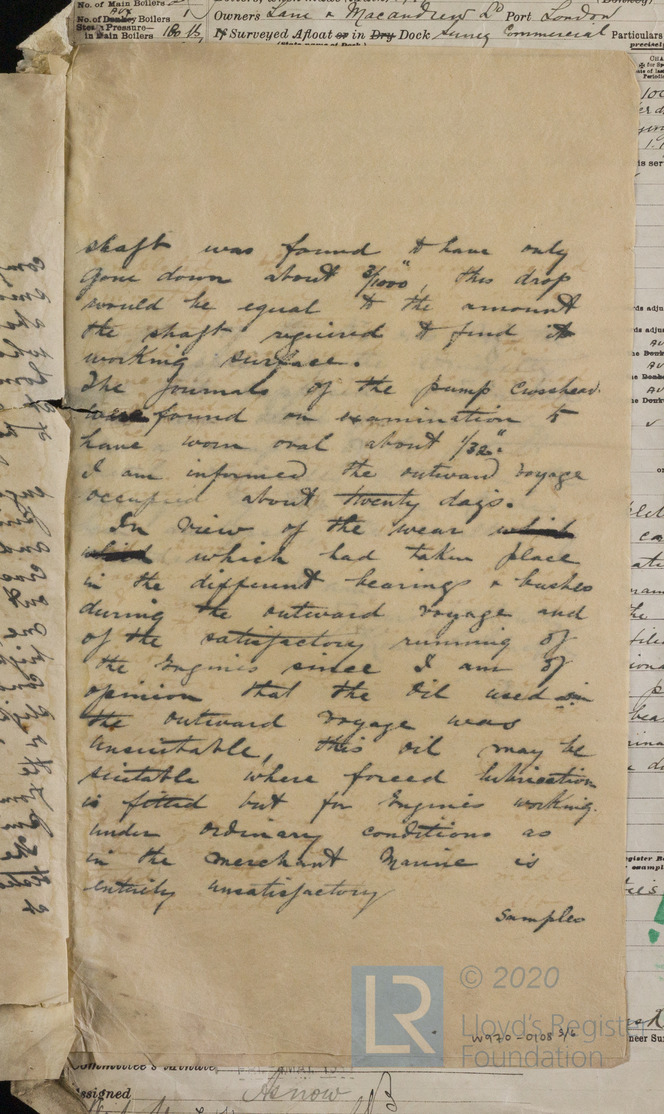 No. of Main Boilers
Aux
No. of Donkey Boilers 1
Steam Pressure—
in Main Boilers 180 lb
Owners Lane & Macandrew Ld Port London
If Surveyed Afloat or in Dry Dock Surrey Commercial
(State name of Dock.)
Particulars
shaft was found to have only
gone down about 3/1000", this drop
would be equal to the amount
the shaft required to find it
working surface.
The Journals of the pump crosshead
were found on examination to
have worn oval about 1/32".
I am informed the outward voyage
occupied about twenty days.
In view of the wear which
which which had taken place
in the different bearings & bushes
during the outward voyage and
of the satisfactory running of
the Engines since I am of
opinion that the oil used in
the outward voyage was
unsuitable, this oil may be
suitable where forced lubrication
is fitted but for Engines working
under ordinary conditions as
in the Merchant Marine is
entirely unsatisfactory
Samples
LR © 2020
Lloyd's Register
Foundation
W970-0108 3/6
Committee's Minute
Assigned As now